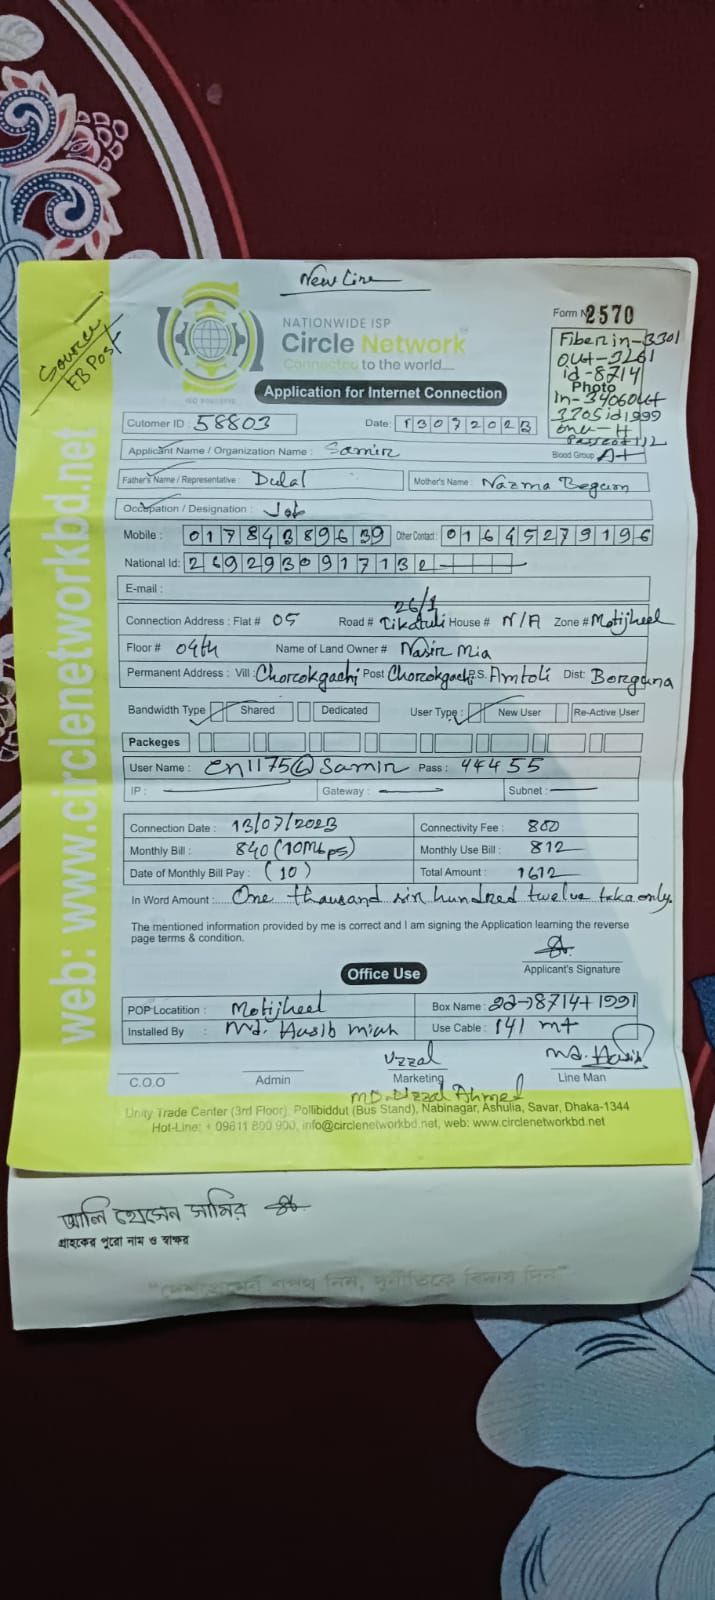 New Line
Source
FB Post
NATIONWIDE ISP
Circle Network
Connected to the world....
ISO 9001:2015
Form No 2570
Fiber in-3301
out-3261
id-8714
Photo
in-3406 out
3705 id 1999
onu-H
Application for Internet Connection
Cutomer ID : 58803 Date: 13072023
Applicant Name / Organization Name : Samir Blood Group A+
Father's Name / Representative : Dulal Mother's Name : Nazma Begum
Occupation / Designation : Job
Mobile : 01784389639 Other Contact : 01645279196
National Id: 2692930917132
E-mail :
26/1
Connection Address : Flat # 05 Road # Tikatuli House # N/A Zone # Motijheel
Floor # 04th Name of Land Owner # Nasir Mia
Permanent Address : Vill Chorcokgachi Post Chorcokgachi P.S. Amtoli Dist: Borguna
Bandwidth Type Shared Dedicated User Type : New User Re-Active User
Packeges
User Name : cn1175@Samir Pass : 44455
IP : Gateway : Subnet :
Connection Date : 13/07/2023 Connectivity Fee : 800
Monthly Bill : 840 (10Mbps) Monthly Use Bill : 812
Date of Monthly Bill Pay : (10) Total Amount : 1612
In Word Amount :...... One thousand six hundred twelve taka only.
The mentioned information provided by me is correct and I am signing the Application learning the reverse
page terms & condition.
Applicant's Signature
Office Use
POP Locatition : Motijheel Box Name : 8714+1991
Installed By : Md. Hasib Miah Use Cable : 141 mt
Uzzal Md. Hasib
C.O.O Admin Marketing Line Man
MD. Uzzal Ahmed
Unity Trade Center (3rd Floor), Pollibiddut (Bus Stand), Nabinagar, Ashulia, Savar, Dhaka-1344
Hot-Line: + 09611 800 900, info@circlenetworkbd.net, web: www.circlenetworkbd.net
web: www.circlenetworkbd.net
আলি হোসেন সামির
গ্রাহকের পুরো নাম ও স্বাক্ষর
শপথ নিন, দুর্নীতিকে বিদায় দিন"